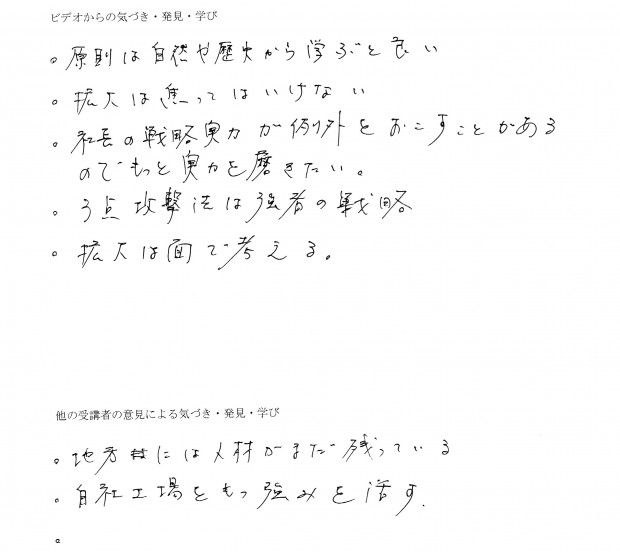 ビデオからの気づき・発見・学び
。原則は自然や歴史から学ぶと良い
。拡大は焦ってはいけない
。社長の戦略実力が例外をおこすことがある
のでもっと実力を磨きたい。
。3点攻撃法は強者の戦略
。拡大は面で考える。
他の受講者の意見による気づき・発見・学び
。地方には人材がまだ残っている
。自社工場をもつ強みを活す.
。